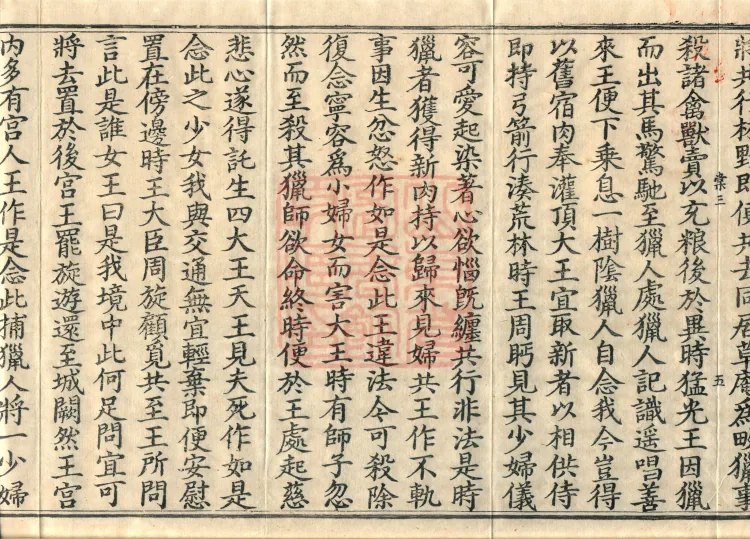 殺諸禽獸賣以充粮後於異時猛光王因獵
棠三
五
而出其馬驚馳至獵人處獵人記識遥唱善
來王便下乘息一樹陰獵人自念我今豈得
以舊宿肉奉灌頂大王宜取新者以相供侍
即持弓箭行湊荒林時王周眄見其少婦儀
容可愛起染著心欲惱旣纏共行非法是時
獵者獲得新肉持以歸來見婦共王作不軌
事因生忿怒作如是念此王違法今可殺除
復念寧容爲小婦女而害大王時有師子忽
然而至殺其獵師欲命終時便於王處起慈
悲心遂得託生四大王天王見夫死作如是
念此之少女我與交通無宜輕棄即便安慰
置在傍邊時王大臣周旋顧覓共至王所問
言此是誰女王曰是我境中此何足問宜可
將去置於後宫王罷旋遊還至城闕然王宫
内多有宫人王作是念此捕獵人將一少婦